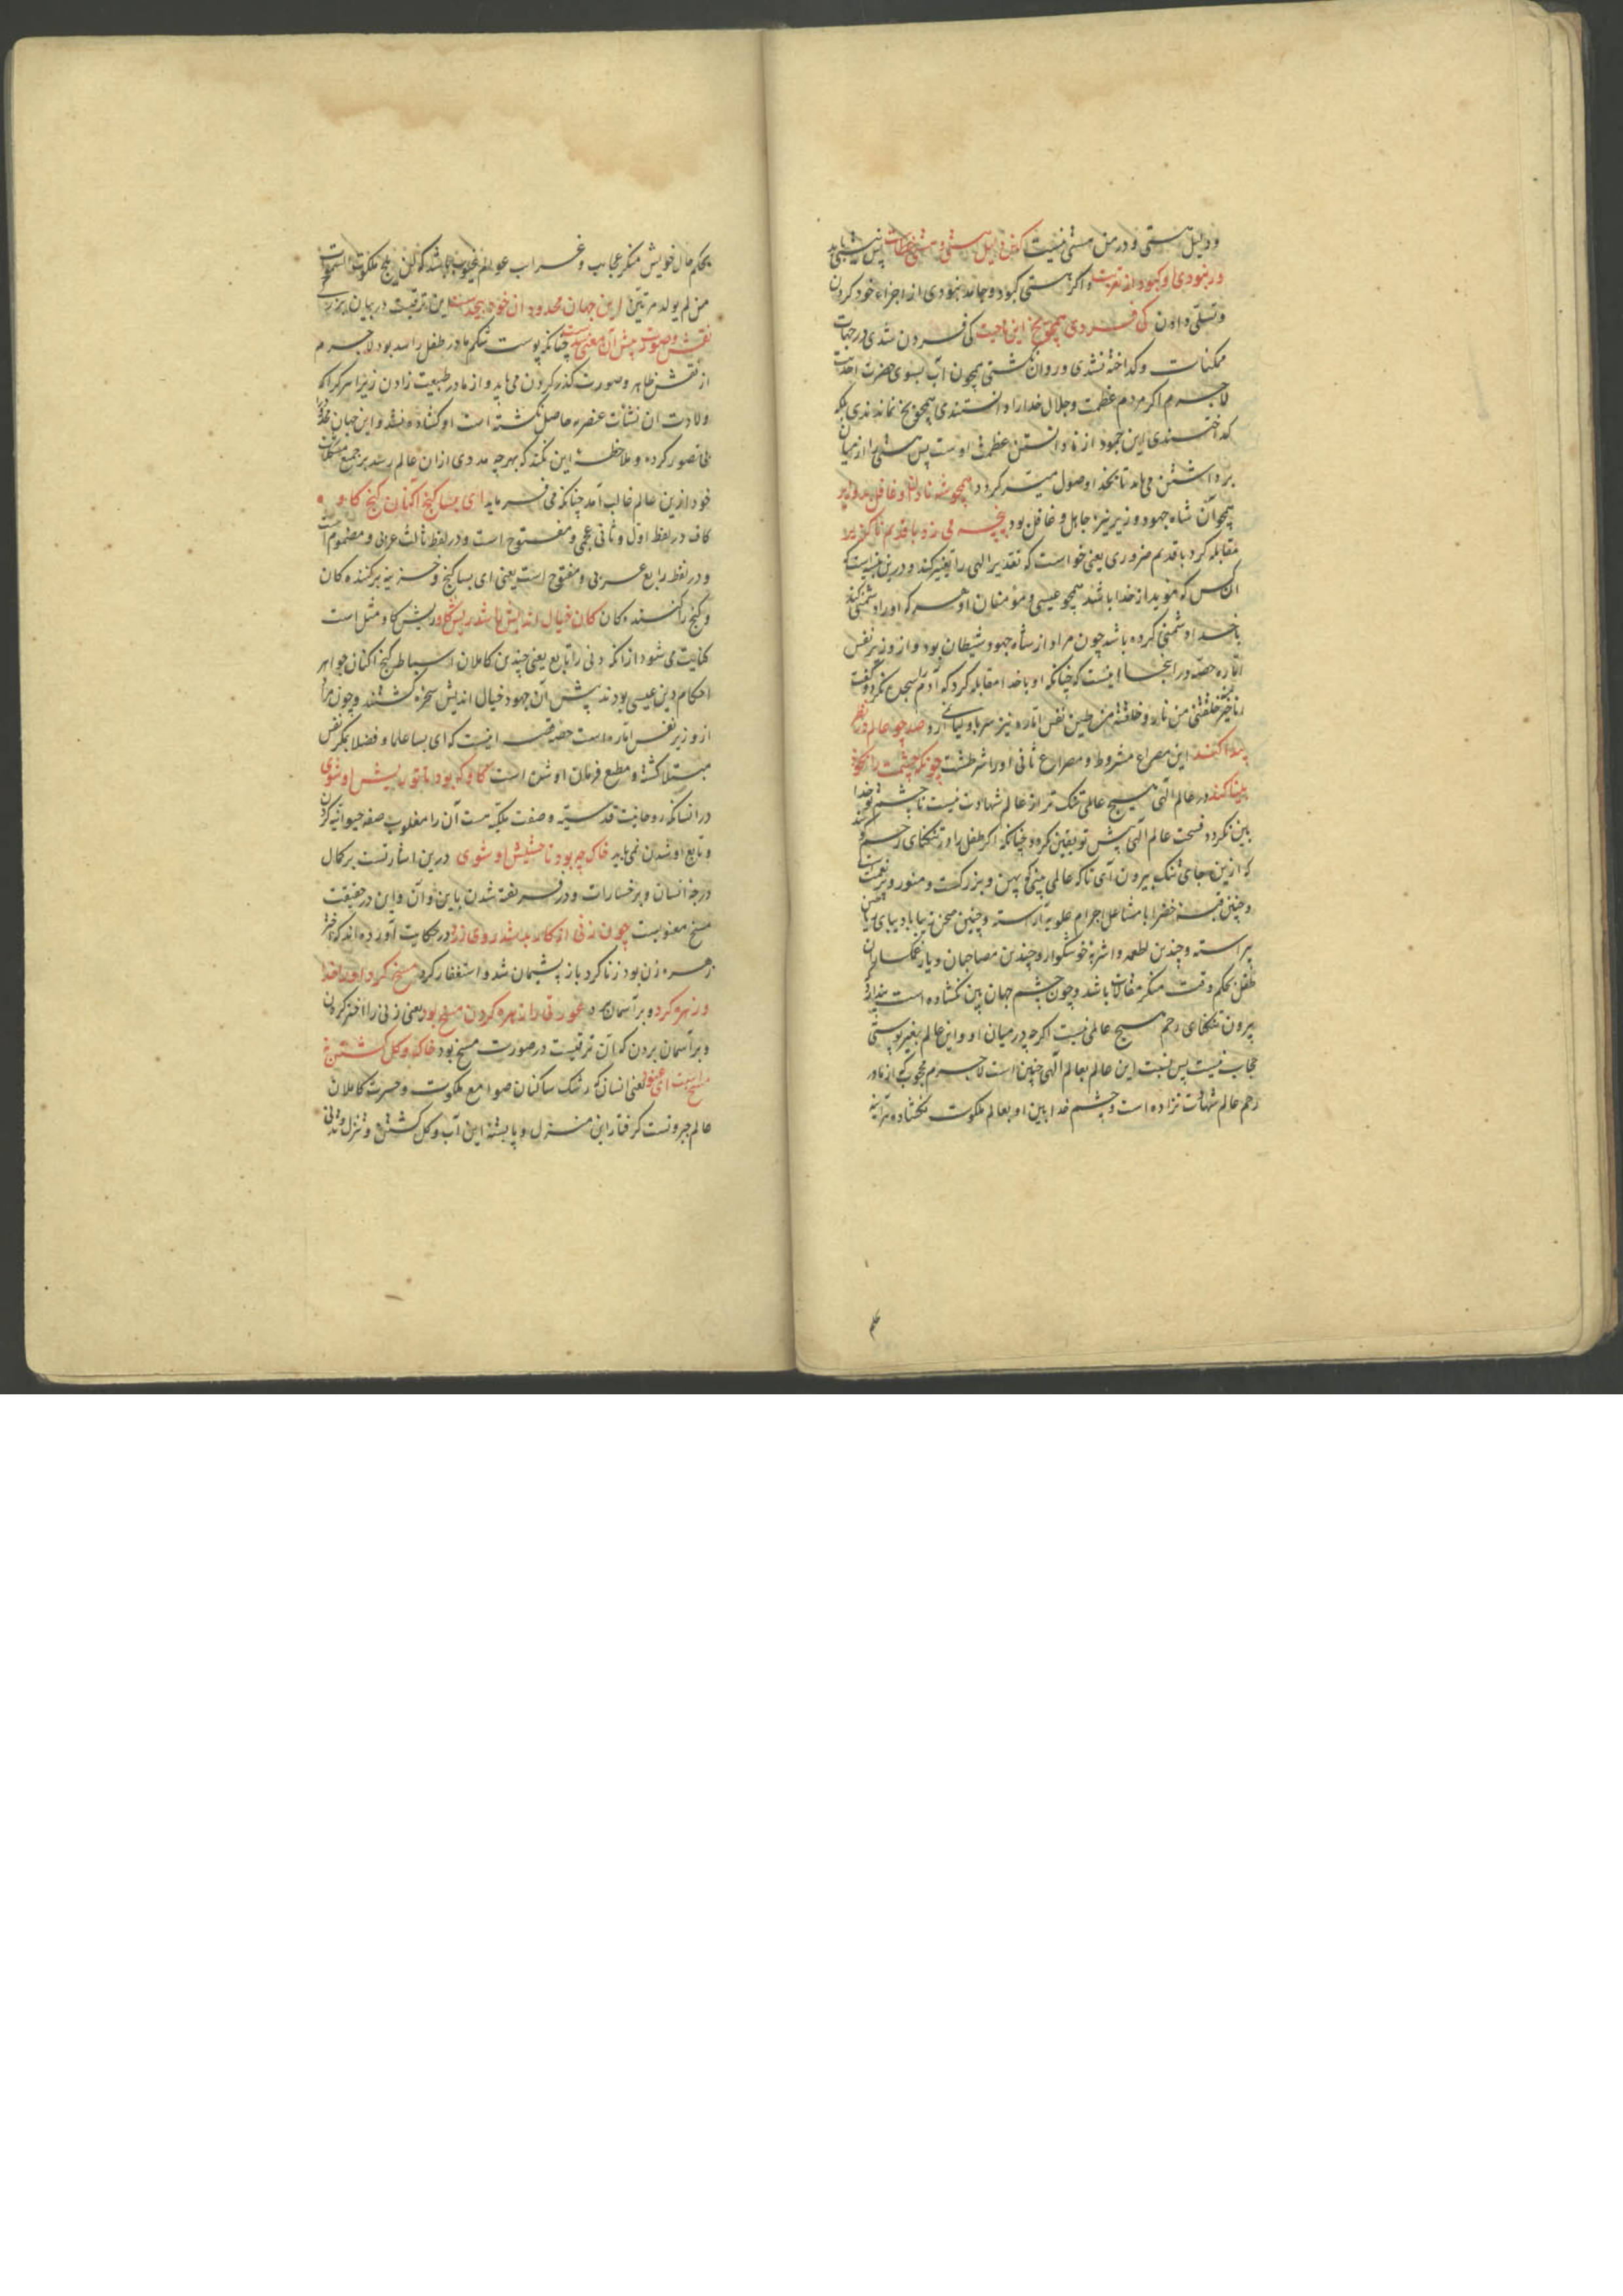 و دلیل هستی و در من هستی نیست کین دلیل هستی و هستی خطاست پس نیستی باید
در نبودی او کبود از تعزیت و اگر هستی کبود و جامه نبودی از اجزاء خود کردن
و تسلی دادن کی فسردی همچو یخ این ناحیت کی فسردن شدی در جهات
ممکنات و گداخته نشدی و روان نگشتی همچون آب بسوی حضرت احدیت
لاجرم اگر مردم عظمت و جلال خدا را دانستندی همچو یخ نماندندی بلکه
گداختندی این جمود از نادانستن عظمت اوست پس هستی را از میان
برداشتن می باید تا بخدا وصول میسر گردد همچو شه نادان و غافل بد وزیر
همچو آن شاه جهود وزیر نیز جاهل و غافل بود پنجه می زد با قدیم ناگزیر
مقابله کرد با قدیم ضروری یعنی خواست که تقدیر الهی را تغییر کند و درین
آن کس که مؤید از خدا باشد همچو عیسی و مؤمنان او هر که او را دشمنی کند
با خدا دشمنی کرده باشد چون مراد از شاه جهود شیطان بود و از وزیر نفس
اماره حصه در اینجا اینست که چنانکه او با خدا مقابله کرد که آدم را سجده نکرد و گفت
انا خیر خلقتنی من نار و خلقته من طین نفس اماره نیز سر با و لیانی آرد صد چو عالم در نظر
پیدا کند این مصراع مشروط و مصراع ثانی او را شرطست چونکه چشمت را بخود
بینا کند در عالم الهی هیچ عالمی تنگ تر از عالم شهادت نیست تا چشم تو خدا
بین نگردد فسحت عالم الهی پیش تو یقین نگردد چنانکه اگر طفل را در تنگنای رحم گویند
که ازین جای تنگ بیرون آی تا که عالمی بینی که پهن و بزرگت و منور و پر نعمت
و چنین قبه خضرا با مشاعل اجرام علویه آراسته و چنین صحن زیبا با دیبای ریاحین
پیراسته و چندین اطعمه و اشربه خوشگوار و چندین مصاحبان و یار غمگساران
طفل بحکم وقت منکر مقالات باشد و چون چشم جهان بین نگشاده است پندارد که
بیرون تنگنای رحم هیچ عالمی نیست اگرچه در میان او و این عالم بغیر پوستی
حجاب نیست پس نسبت این عالم بعالم الهی چنین است لاجرم محجوب که از مادر
رحم عالم شهادت نزاده است و چشم خدا بین او بعالم ملکوت نگشاده هرآینه
علم
بحکم حال خویش منکر عجایب و غرایب عوالم غیوب باشد که لن یلج ملکوت السموات
من لم یولد مرتین این جهان محدود و آن خود بیحدست این ترقیست در بیان بزرگی
نقش و صورت پیش آن معنی سدست چنانکه پوست شکم مادر طفل را سد بود لاجرم
از نقش ظاهر و صورت گذر کردن می باید و از مادر طبیعت زادن زیرا هر کرا که
ولادت ان نشات عنصره حاصل نگشته است او گشاده نشد و این جهان محدود را
فی تصور کرده و ملاحظه این نکند که بهر چه مددی از ان عالم رسد بر جمیع مشکلات
خود ازین عالم غالب آمد چنانکه می فرماید ای بسا گنج آگنان گنج کاو
کاف در لفظ اول و ثانی عجمی و مفتوح است و در لفظ ثالث عربی و مضموم است
و در لفظ رابع عربی و مفتوح است یعنی ای بسا گنج و خزینه پر کننده کان
و گنج را کننده کان کان خیال اندیش را شد ریش گاو ریش گاو مثل است
کنایت می شود از انکه دنی را تابع یعنی چندین کاملان اسباط گنج آگنان جواهر
احکام دین عیسی بودند پیش آن جهود خیال اندیش سخره گشتند و چون مراد
از وزیر نفس اماره است حصه قصه اینست که ای بسا علما و فضلا بمکر نفس
مبتلا گشته و مطیع فرمان او شدن است گاو که بود تا تو ریش او شوی
در انسانکه روحانیت قدسیه و صفت ملکیه هست آن را مغلوب صفة حیوانیه کردن
و تابع او شدن نمی باید خاک چه بود تا حشیش او شوی درین اشارتست بر کمال
درجه انسان و بر خسارات و در فریفته شدن باین و آن و این در حقیقت
مسخ معنویست چون زنی از کار بد شد روی زرد در حکایت آورده اند که
زهره زن بود زنا کرد باز پشیمان شد و استغفار کرد مسخ کرد او را خدا
و زهره کرد و بر آسمان برد عورتی را زهره کردن مسخ بود یعنی زنی را اختر کردن
و بر آسمان بردن که آن ترقیست در صورت مسخ بود خاک و گل گشتن چه
مسخ است ای عنود یعنی انسان که رشک ساکنان صوامع ملکوت و حسرت کاملان
عالم جبروتست گرفتار این منزل و پا بسته این آب و گل گشتن و تنزل و تدنی